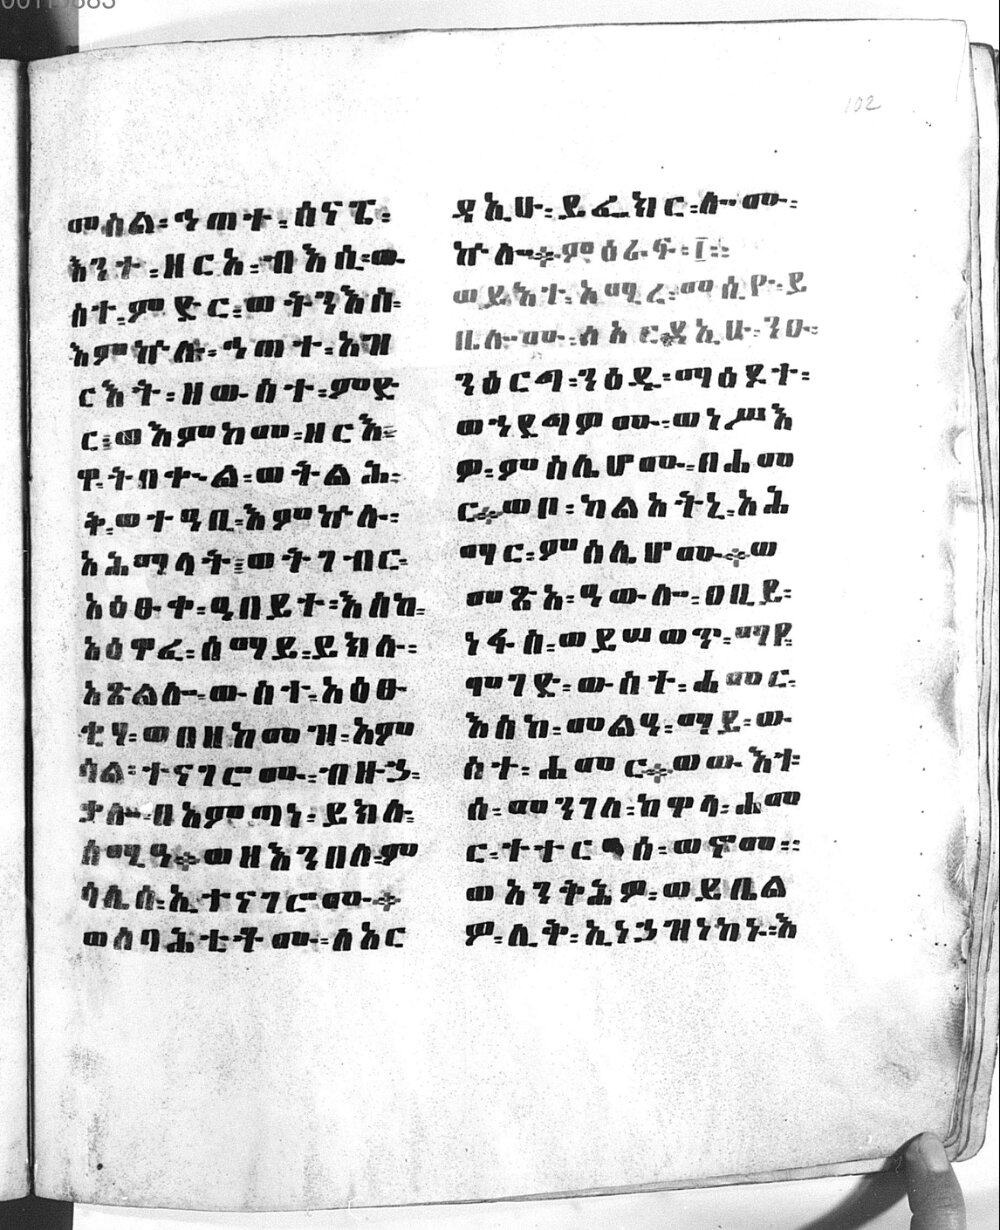 102
መሰል፡ኅጠተ፡ሰናፒ፡
እንተ፡ዘርአ፡ብእሲ፡ው
ስተ፡ምድር፡ወትንእስ፡
እምኵሉ፡ኅጠተ፡አዝ
ርእት፡ዘውስተ፡ምድ
ር፡ወእምከመ፡ዘርእ፡
ዋ፡ትበቍል፡ወትልሕ፡
ቅ፡ወተዓቢ፡እምኵሉ፡
አሕማላት፡ወትገብር፡
አዕፁቀ፡ዓበይተ፡እስከ፡
አዕዋፈ፡ሰማይ፡ይክሉ፡
አጽልሎ፡ውስተ፡አዕፁ
ቂሃ፡ወበዘከመ፡ዝ፡አም
ሳል፡ተናገሮሙ፡ብዙኃ፡
ቃሎ፡በአምጣነ፡ይክሉ፡
ሰሚዓ፡ወዘእንበለ፡ም
ሳሌሰ፡ኢተናገሮሙ፡
ወለባሕቲቶሙ፡ለአር
ዳኢሁ፡ይፈክር፡ሎሙ፡
ኵሎ፡ምዕራፍ፡፲፡
ወይእተ፡አሚረ፡መስዮ፡ይ
ቤሎሙ፡ለአርዳኢሁ፡ንዑ፡
ንዕርግ፡ንዕዱ፡ማዕዶተ፡
ወኀደግዎሙ፡ወነሥእ
ዎ፡ምስሌሆሙ፡በሐመ
ር፡ወቦ፡ካልአትኒ፡አሕ
ማር፡ምስሌሆሙ፡ወ
መጽአ፡ዓውሎ፡ዐቢይ፡
ነፋስ፡ወይሠወጥ፡ማየ
ማዕገድ፡ውስተ፡ሐመር፡
እስከ፡መልዓ፡ማይ፡ው
ስተ፡ሐመር፡ወውእቱ
ሰ፡መንገለ፡ከዋላ፡ሐመ
ር፡ተተርዓሰ፡ወኖመ፡
ወአንቅሕዎ፡ወይቤል
ዎ፡ሊቅ፡ኢነኃዝነከኑ፡እ